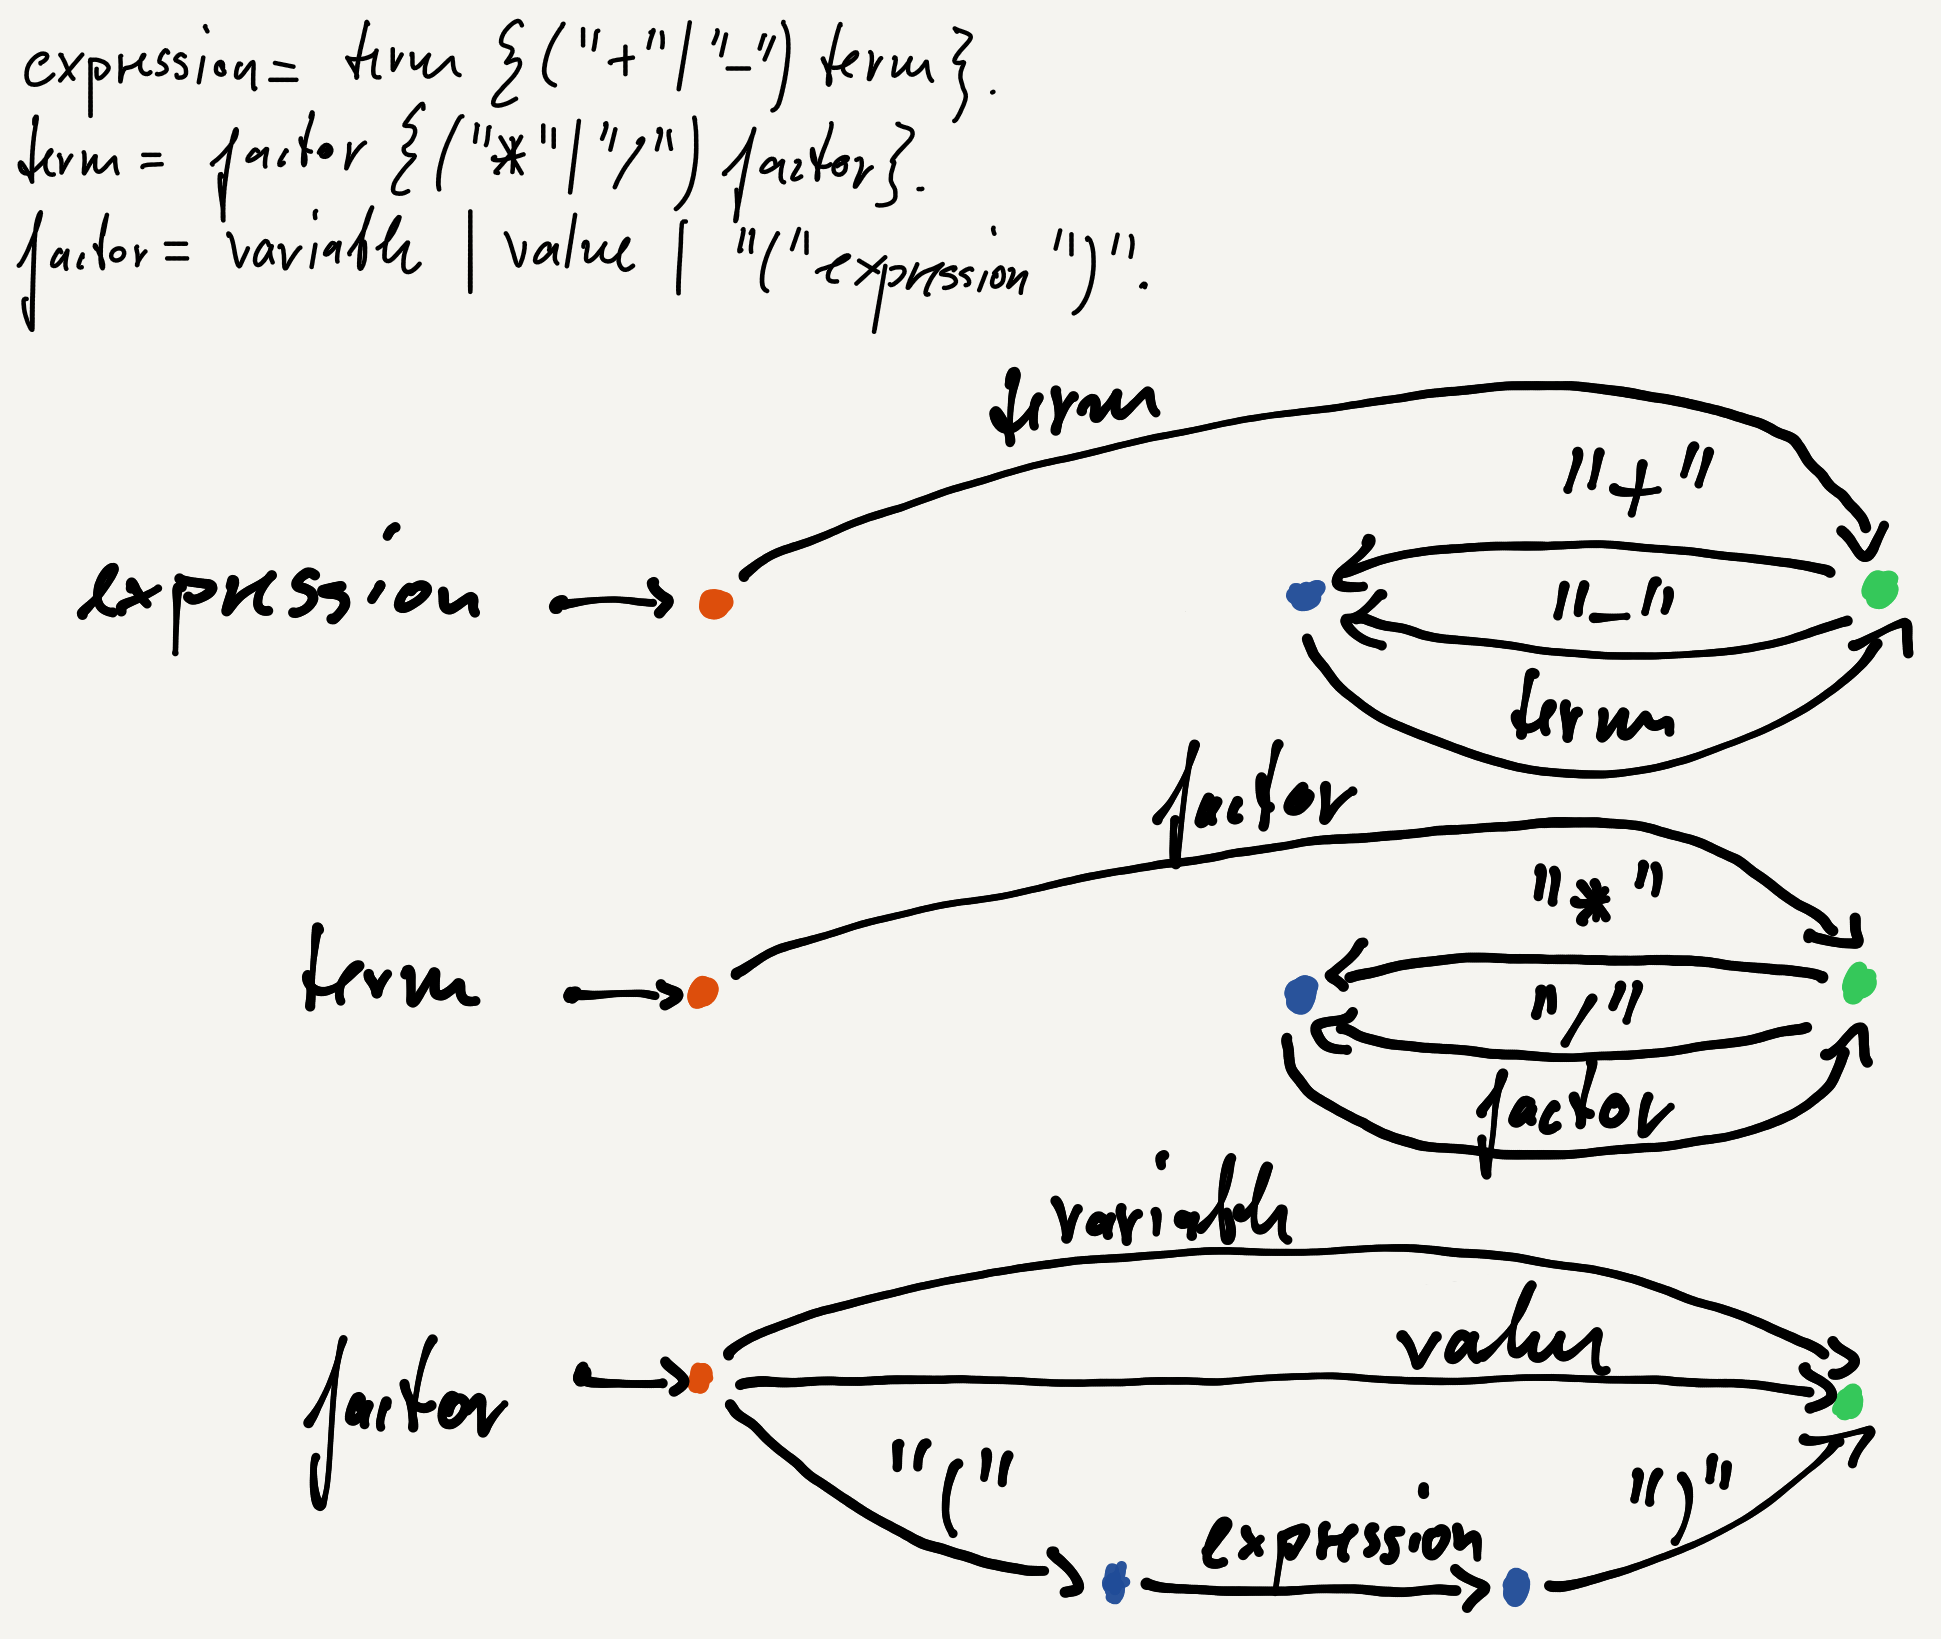 expression = term {("+" | "-") term}.
term = factor {("*" | "/") factor}.
factor = variable | value | "(" expression ")".
term
"+"
expression
"-"
term
factor
"*"
term
"/"
factor
variable
value
factor
"("
")"
expression